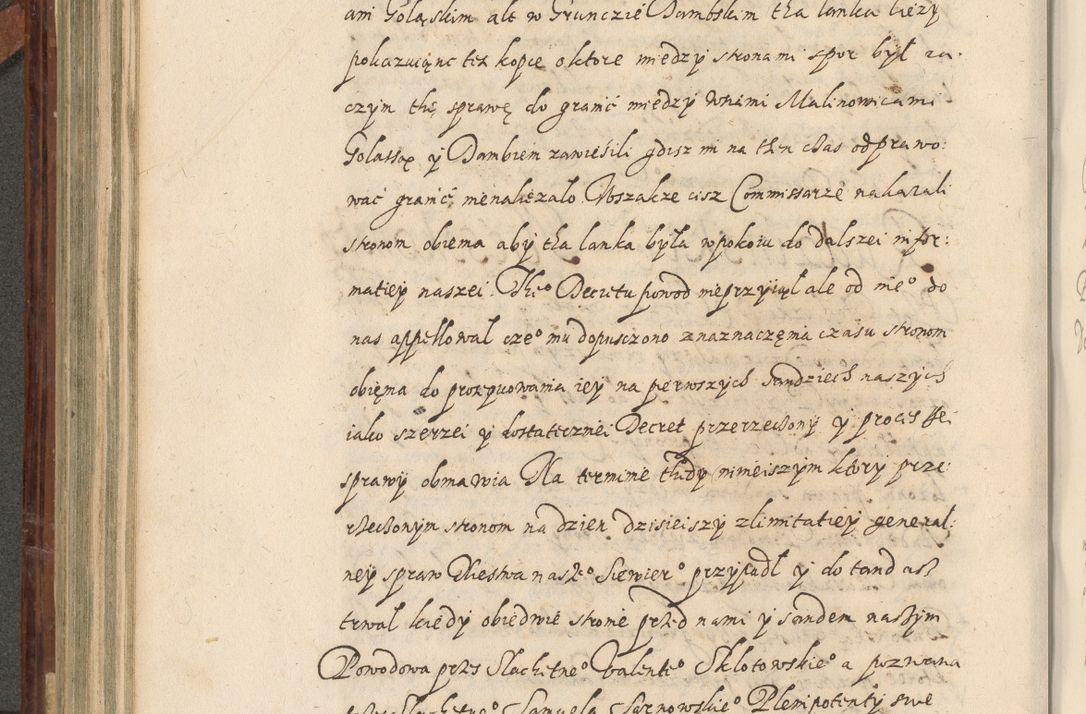 ani Golaskim ale w Grunczie Dambskim tha lanka lieży
pokazuiąnc tesz kopce o ktore miedzy stronami spor był za
czym thę sprawę do granić miedzy wsiami Malinowicami
Golasszą y Dambiem zawiesili gdisz mi na then czas odprawo:
wać granić nienalieżalo Wszakze cisz Commissarze nakazali
stronom obiema aby tha lanka była w pokoiu do dalszei infor:
matiey naszei. Theo Decretu powod nieprzyiął ale od nieo do
nas appellował czeo mu dopusczono z naznaczęnia czasu stronom
obięma do prosequowania iey na pierwszych sandziech naszych
iako szerzei y dostatecznei Decret przerzeczony y process tei
sprawy obmawia Na terminie thedy ninieiszym ktory prze:
rzeczonym stronom na dzien dzisieiszy z limitatiey general:
ney spraw Xiestwa naszeo Siewiero przypadł y do tand asz
trwał kiedy obiedwie stronie przed nami y sandem naszym
Powodowa przes Slachetneo Valenteo Sklotowskieo a pozwana
przes Slachetneo Samuela Sarnowskieo Plenipotenty swe